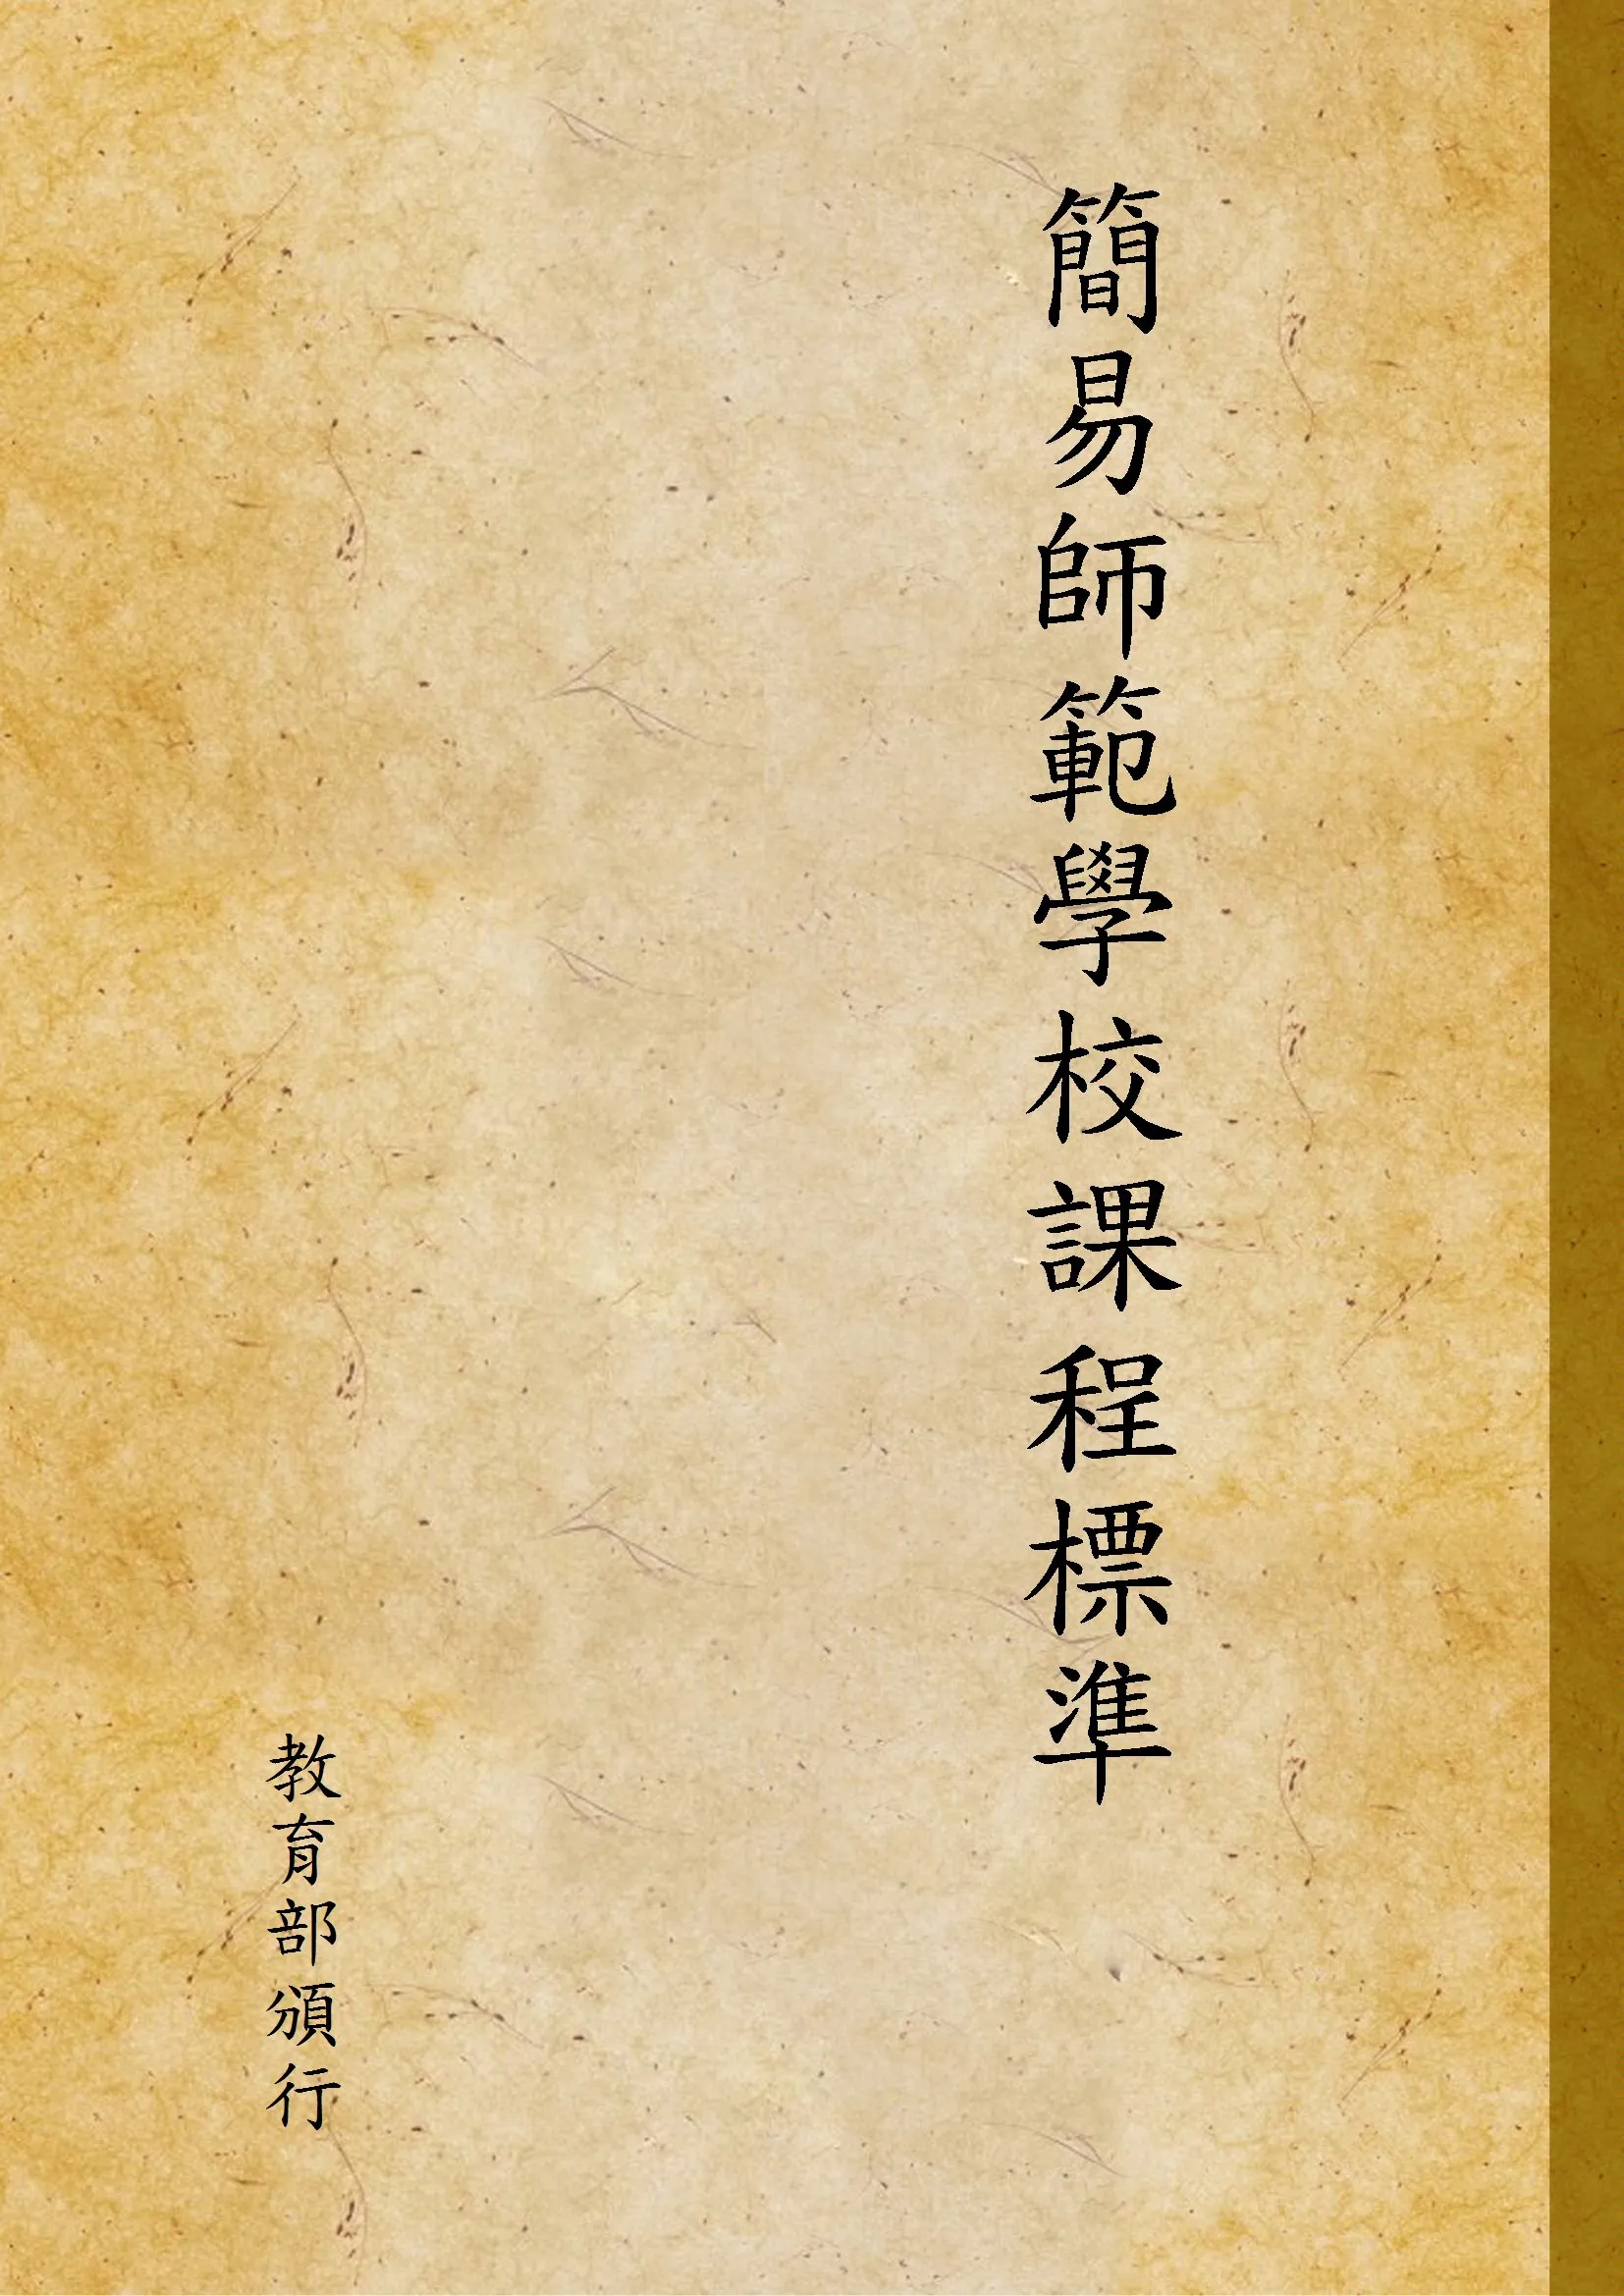 簡易師範學校課程標準
教育部頒行